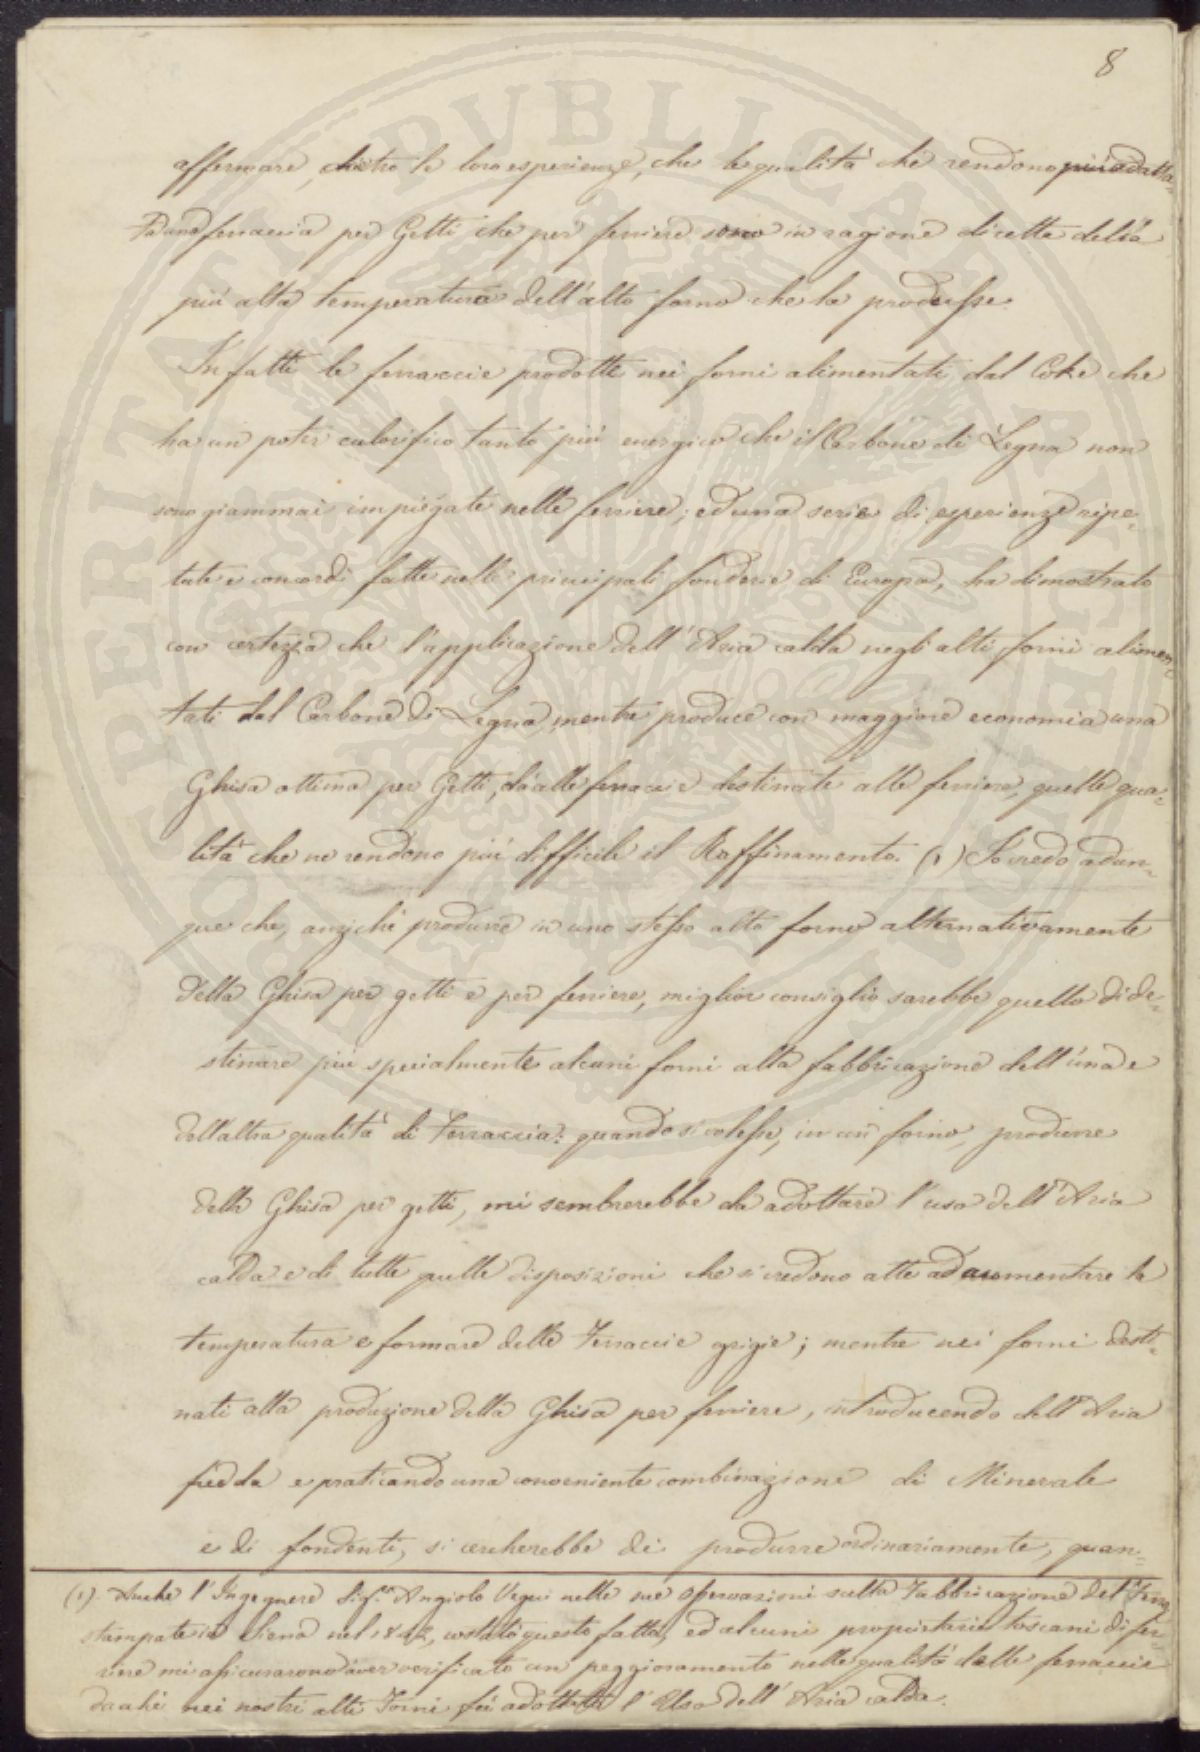 8
affermare, dietro le loro esperienze, che le qualità che rendono più adatta
una ferraccia per Getti che per ferriere sono in ragione diretta della
più alta temperatura dell'alto forno che la produsse.
In fatti le ferraccie prodotte nei forni alimentati dal Coke che
ha un poter calorifico tanto più energico che il Carbone di Legna non
sono giammai impiegate nelle ferriere; ed una serie di esperienze ripe=
tute e concordi fatte nelle principali fonderie di Europa, ha dimostrato
con certezza che l'applicazione dell'Aria calda negli alti forni alimen=
tati dal Carbone di Legna, mentre produce con maggiore economia una
Ghisa ottima per Getti, dà alle ferraccie destinate alle ferriere, quelle qua=
lità che ne rendono più difficile il Raffinamento. (1) Io credo adun=
que che, anziché produrre in uno stesso alto forno alternativamente
della Ghisa per getti e per ferriere, miglior consiglio sarebbe quello di de=
stinare più specialmente alcuni forni alla fabbricazione dell'una e
dell'altra qualità di Ferraccia: quando si volesse, in un forno, produrre
della Ghisa per getti, mi sembrerebbe da adottare l'uso dell'Aria
calda e di tutte quelle disposizioni che si credono atte ad aumentare la
temperatura e formare delle Ferraccie grigie; mentre nei forni desti=
nati alla produzione della Ghisa per ferriere, introducendo dell'Aria
fredda e praticando una conveniente combinazione di Minerale
e di fondenti, si cercherebbe di produrre ordinariamente, quan=
(1). Anche l'Ingegnere Sig.r Angiolo Vegni nelle sue Osservazioni sulla Fabbricazione del Ferro
stampate in Siena nel 1842, constatò questo fatto, ed alcuni proprietarii toscani di fer=
riere mi assicurarono d'aver verificato un peggioramento nelle qualità delle ferraccie
da che nei nostri alti Forni fu adottato l'Uso dell'Aria calda.
PROSPERITATI PUBLICAE AUGENDAE